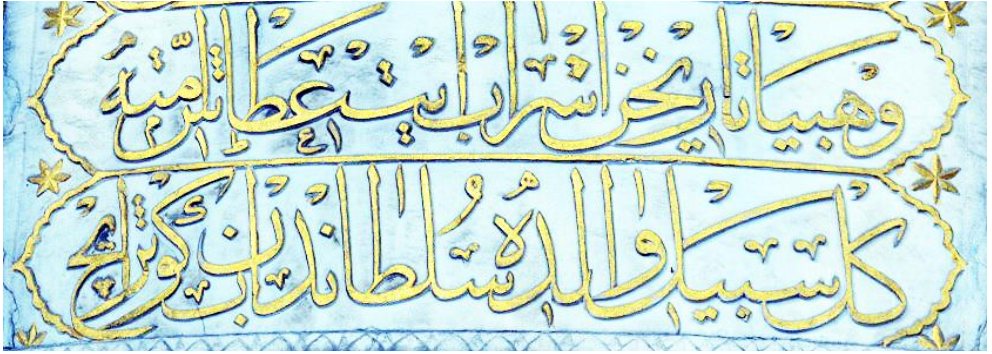 وهبیا تاریخن اشراب ایت عطاش امته
كل سبیل والده سلطاندن آب كوثر ایچ